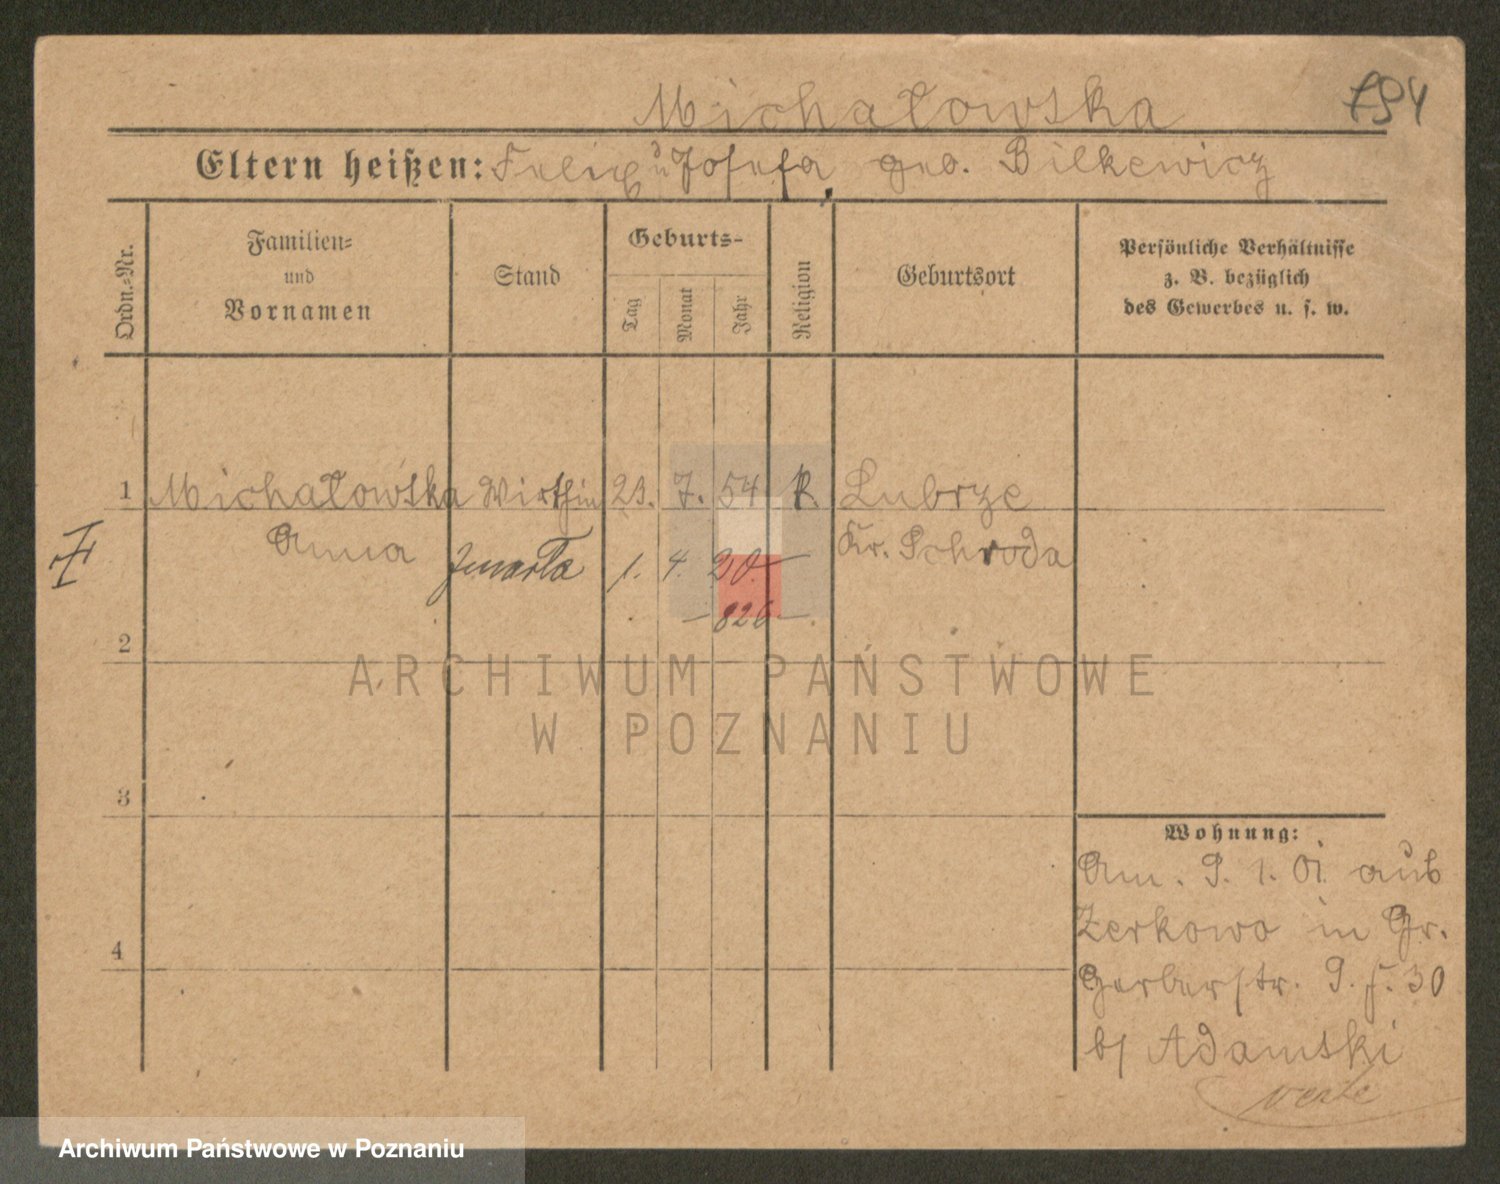 Michałowska
Eltern heißen: Felix u Josefa, geb. Bilkewicz
Ordn.-Nr.
Familien-
und
Vornamen
Stand
Geburts-
Tag
Monat
Jahr
Religion
Geburtsort
Persönliche Verhältnisse
z. B. bezüglich
des Gewerbes u. s. w.
1 Michałowska Wirthin 23. 7. 54 k. Lubrze
Anna Kr. Schroda
zmarła 1. 4. 20.
- 826 -
2
ARCHIWUM PAŃSTWOWE
W POZNANIU
3
Wohnung:
Am. 9. 1. 01 aus
Zerkowo in Gr.
4
Gerberstr. 9. f. 30
b/ Adamski
verte
Archiwum Państwowe w Poznaniu